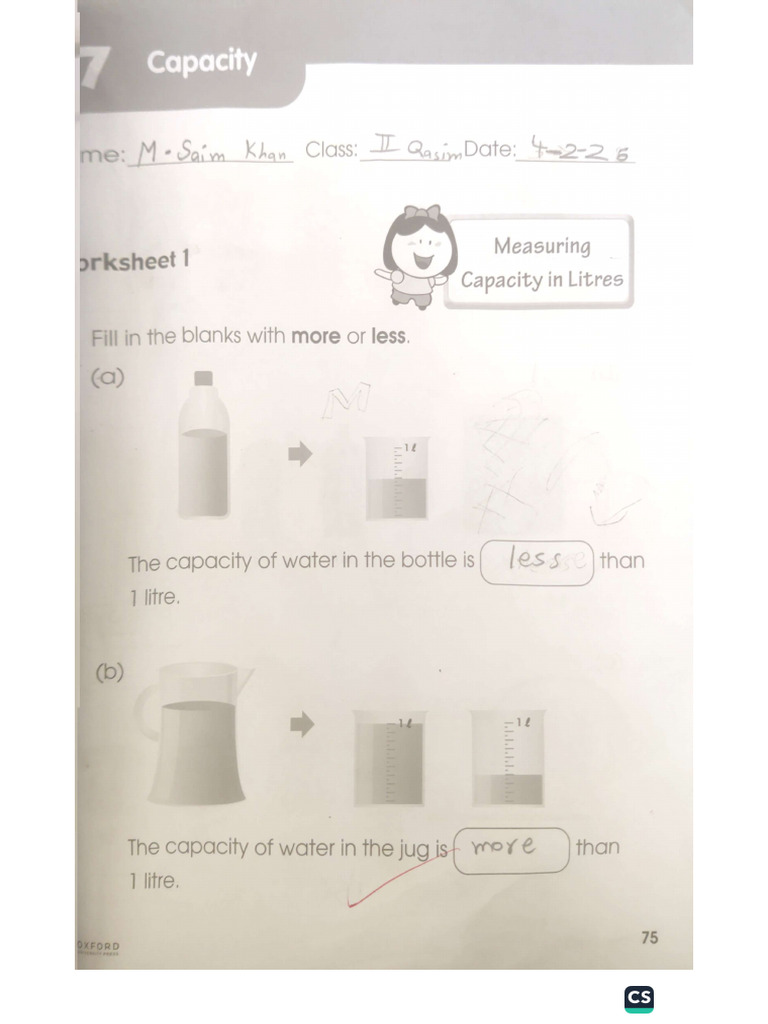 7 Capacity
me: M. Saim Khan Class: II Qasim Date: 4-2-26
orksheet 1
Measuring
Capacity in Litres
Fill in the blanks with more or less.
(a)
M
1 ℓ
The capacity of water in the bottle is less than
1 litre.
(b)
1 ℓ 1 ℓ
The capacity of water in the jug is more than
1 litre.
OXFORD
75
CS